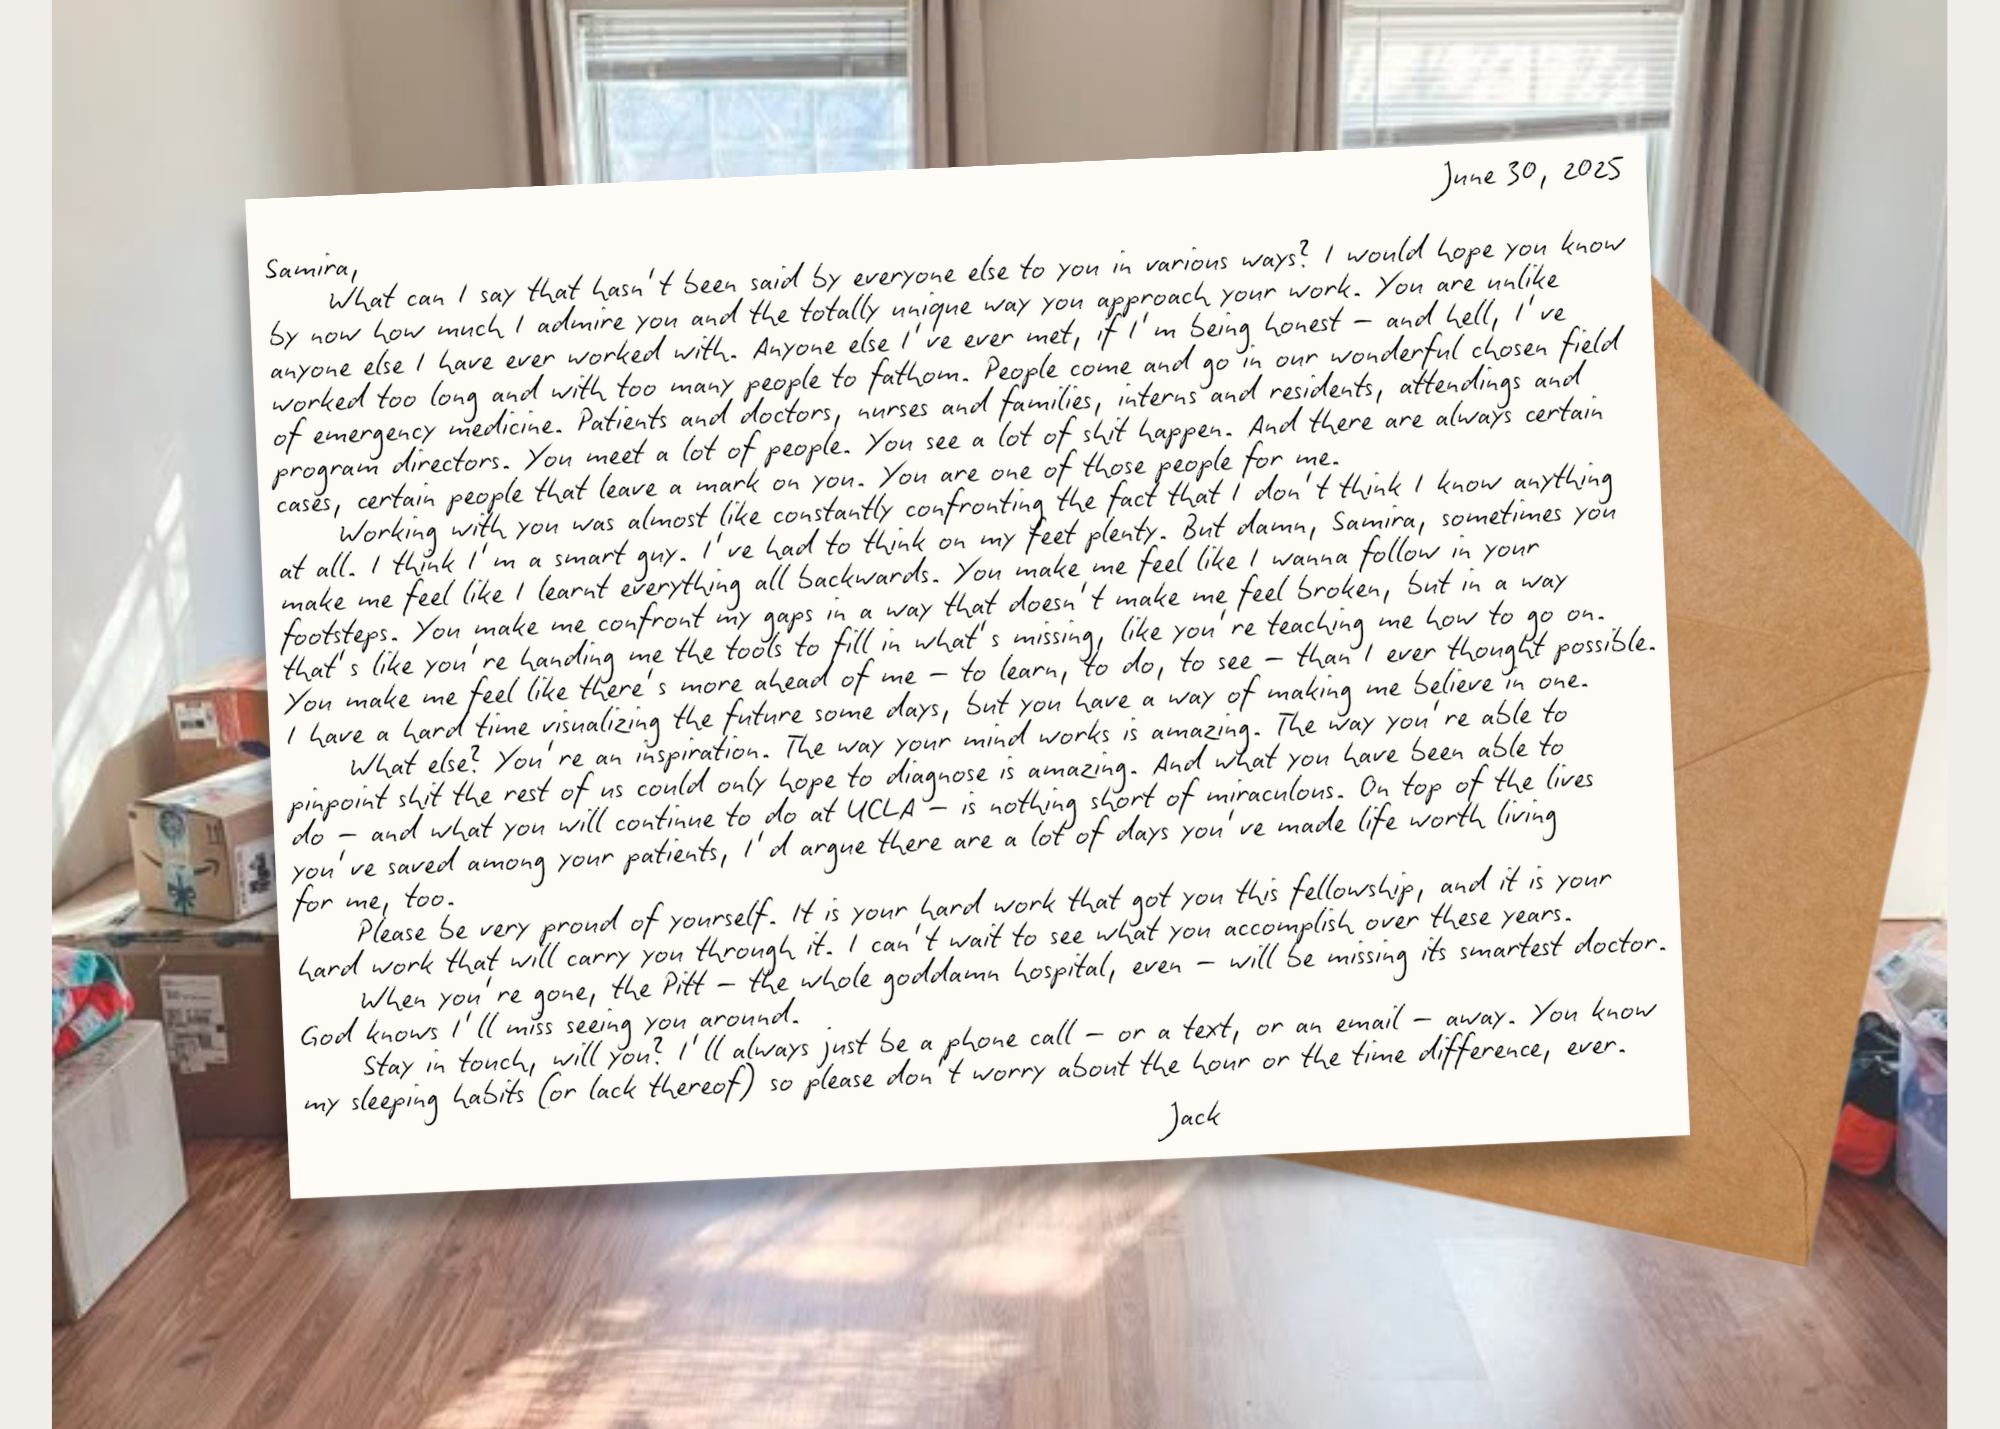 June 30, 2025
Samira,
What can I say that hasn't been said by everyone else to you in various ways? I would hope you know
by now how much I admire you and the totally unique way you approach your work. You are unlike
anyone else I have ever worked with. Anyone else I've ever met, if I'm being honest – and hell, I've
worked too long and with too many people to fathom. People come and go in our wonderful chosen field
of emergency medicine. Patients and doctors, nurses and families, interns and residents, attendings and
program directors. You meet a lot of people. You see a lot of shit happen. And there are always certain
cases, certain people that leave a mark on you. You are one of those people for me.
Working with you was almost like constantly confronting the fact that I don't think I know anything
at all. I think I'm a smart guy. I've had to think on my feet plenty. But damn, Samira, sometimes you
make me feel like I learnt everything all backwards. You make me feel like I wanna follow in your
footsteps. You make me confront my gaps in a way that doesn't make me feel broken, but in a way
that's like you're handing me the tools to fill in what's missing, like you're teaching me how to go on.
You make me feel like there's more ahead of me – to learn, to do, to see – than I ever thought possible.
I have a hard time visualizing the future some days, but you have a way of making me believe in one.
What else? You're an inspiration. The way your mind works is amazing. The way you're able to
pinpoint shit the rest of us could only hope to diagnose is amazing. And what you have been able to
do – and what you will continue to do at UCLA – is nothing short of miraculous. On top of the lives
you've saved among your patients, I'd argue there are a lot of days you've made life worth living
for me, too.
Please be very proud of yourself. It is your hard work that got you this fellowship, and it is your
hard work that will carry you through it. I can't wait to see what you accomplish over these years.
When you're gone, the Pitt – the whole goddamn hospital, even – will be missing its smartest doctor.
God knows I'll miss seeing you around.
Stay in touch, will you? I'll always just be a phone call – or a text, or an email – away. You know
my sleeping habits (or lack thereof) so please don't worry about the hour or the time difference, ever.
Jack